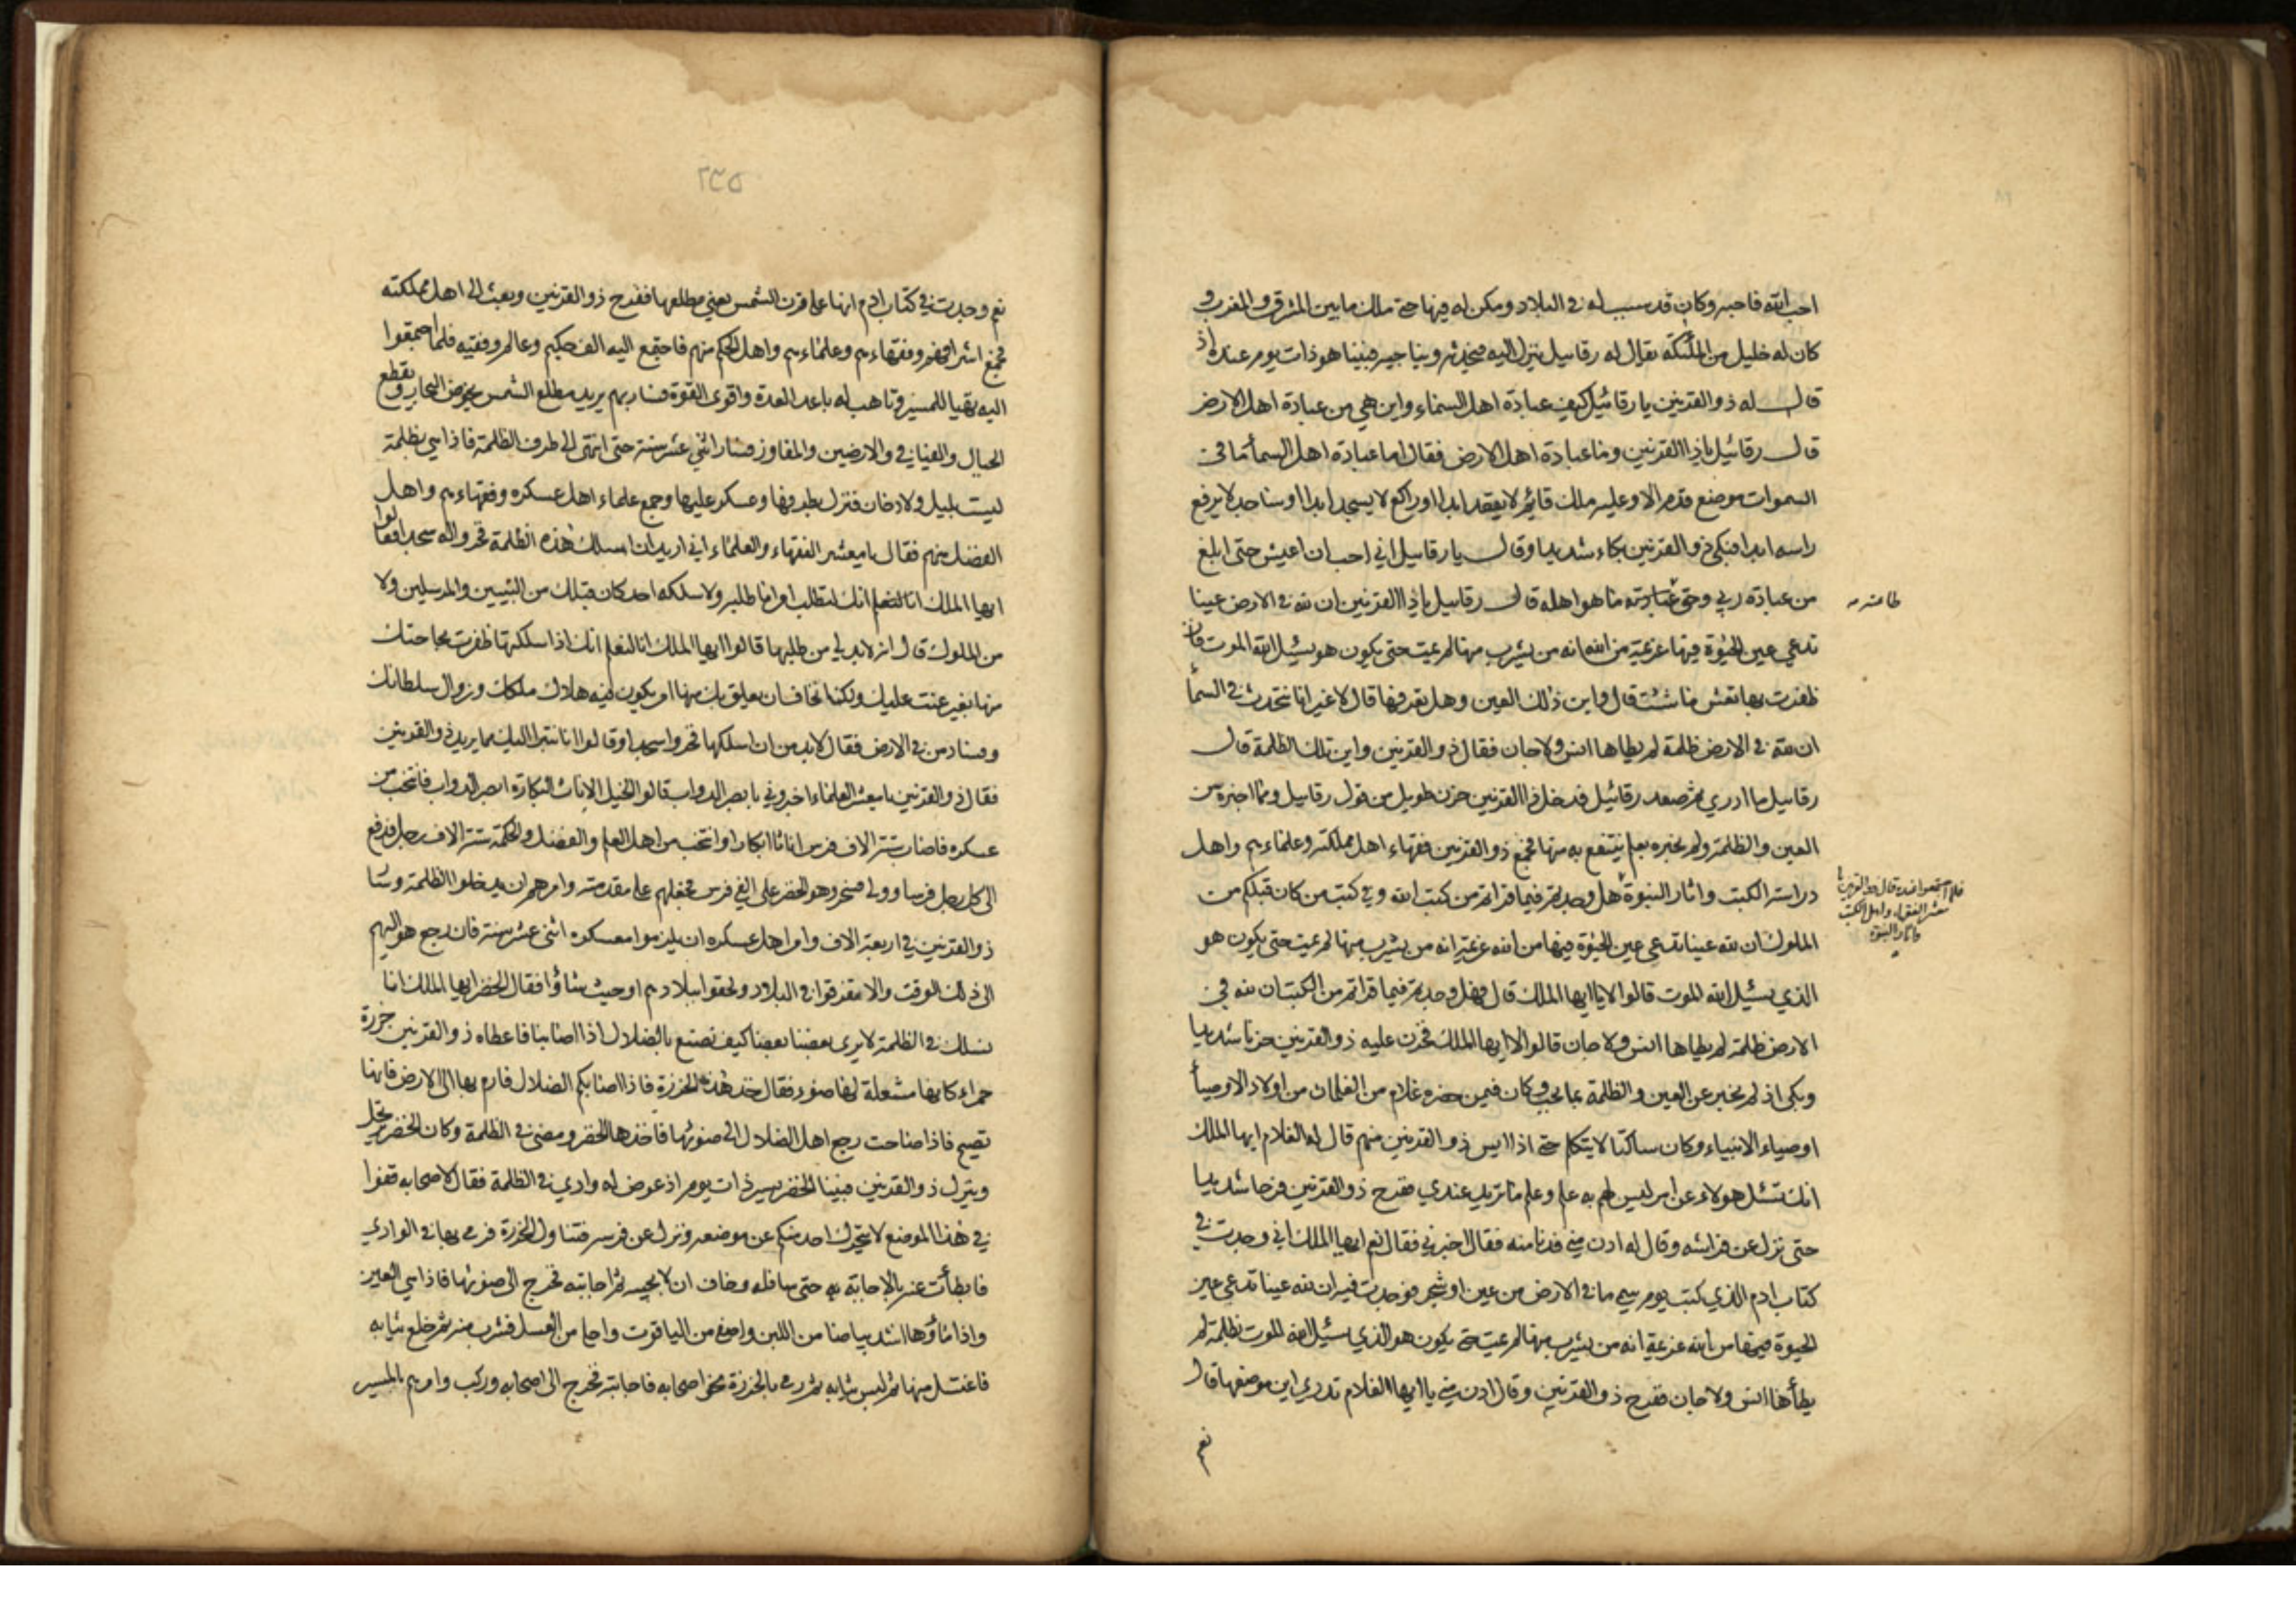 احب الله فاحبه وكان قد سبب له في البلاد ومكن له فيها حتى ملك ما بين المشرق والمغرب و
كان له خليل من الملئكة يقال له رقاييل ينزل اليه فيحدثه ويناجيه فبينا هو ذات يوم عنده اذ
قال له ذو القرنين يا رقائيل كيف عبادة اهل السماء واين هي من عبادة اهل الارض
قال رقائيل يا ذا القرنين وما عبادة اهل الارض فقال اما عبادة اهل السماء ما في
السموات موضع قدم الا وعليه ملك قائم لا يقعد ابدا او راكع لا يسجد ابدا او ساجد لا يرفع
راسه ابدا فبكى ذو القرنين بكاء شديدا وقال يا رقاييل اني احب ان اعيش حتى ابلغ
من عبادة ربي وحق عبادته ما هو اهله قال رقاييل يا ذا القرنين ان لله في الارض عينا
طاعته
تدعي عين الحيوة فيها عزيمة من الله انه من يشرب منها لم يمت حتى يكون هو يسئل الله الموت فان
ظفرت بها تعش ما شئت قال واين ذلك العين وهل تعرفها قال لا غير انا نتحدث في السماء
ان لله في الارض ظلمة لم يطاها انس ولا جان فقال ذو القرنين واين تلك الظلمة قال
رقاييل ما ادري ثم صعد رقائيل فدخل ذا القرنين حزن طويل من قول رقاييل ومما اخبره من
العين والظلمة ولم يخبره بعلم ينتفع به منها فجمع ذو القرنين فقهاء اهل مملكته وعلماءهم واهل
دراسة الكتب واثار النبوة هل وجدتم فيما قراتم من كتب الله وفي كتب من كان قبلكم من
فلما اجتمعوا عنده قال ذو القرنين يا
معشر الفقهاء واهل الكتب
واثار النبوة
الملوك ان لله عينا تدعى عين الحيوة فيها من الله عزيمة انه من يشرب منها لم يمت حتى يكون هو
الذي يسئل الله الموت قالوا لا يا ايها الملك قال فهل وجدتم فيما قراتم من الكتب ان لله في
الارض ظلمة لم يطاها انس ولا جان قالوا لا ايها الملك فحزن عليه ذو القرنين حزنا شديدا
وبكى اذ لم يخبر عن العين والظلمة بما يحب وكان فيمن حضره غلام من الغلمان من اولاد الاوصياء
اوصياء الانبياء وكان ساكتا لا يتكلم حتى اذا ايس ذو القرنين منهم قال له الغلام ايها الملك
انك تسئل هولاء عن امر ليس لهم به علم وعلم ما تريد عندي ففرح ذو القرنين فرحا شديدا
حتى نزل عن فراشه وقال له ادن مني فدنا منه فقال اخبرني فقال نعم ايها الملك اني وجدت في
كتاب ادم الذي كتب يوم سمي ما في الارض من عين او شجر فوجدت فيه ان لله عينا تدعى عين
الحيوة فيها من الله عزيمة انه من يشرب منها لم يمت حتى يكون هو الذي يسئل الله الموت بظلمة لم
يطأها انس ولا جان ففرح ذو القرنين وقال ادن مني يا ايها الغلام تدري اين موضعها قال
نعم
٢٣٥
نعم وجدت في كتاب ادم انها على قرن الشمس يعني مطلعها ففرح ذو القرنين وبعث الى اهل مملكته
فجمع اشرافهم وفقهاءهم وعلماءهم واهل الحكم منهم فاجتمع اليه الف حكيم وعالم وفقيه فلما اجتمعوا
اليه تهيا للمسير وتاهب له باعد العدة واقوى القوة فسار بهم يريد مطلع الشمس يخوض البحار ويقطع
الجبال والفيافي والارضين والمفاوز فسار اثني عشر سنة حتى انتهى الى طرف الظلمة فاذا هي بظلمة
ليست بليل ولا دخان فنزل بطرفها وعسكر عليها وجمع علماء اهل عسكره وفقهاءهم واهل
الفضل منهم فقال يا معشر الفقهاء والعلماء اني اريد ان اسلك هذه الظلمة فخروا له سجدا فقالوا
ايها الملك انا لنعلم انك لتطلب امرا ما طلبه ولا سلكه احد كان قبلك من النبيين والمرسلين ولا
من الملوك قال انه لا بد لي من طلبها قالوا ايها الملك انا لنعلم انك اذا سلكتها ظفرت بحاجتك
منها بغير عنت عليك ولكنا نخاف ان يعلق بك منها امر يكون فيه هلاك ملكك وزوال سلطانك
وفساد من في الارض فقال لا بد من ان اسلكها فخروا سجدا وقالوا انا نتبرا اليك مما يريد ذو القرنين
فقال ذو القرنين يا معشر العلماء اخبروني بابصر الدواب قالوا الخيل الاناث البكارة ابصر الدواب فانتخب من
عسكره فاصاب ستة الاف فرس اناثا ابكارا وانتخب من اهل العلم والفضل والحكمة ستة الاف رجل فدفع
الى كل رجل فرسا وولى وهو الخضر على الفي فرس فجعلهم على مقدمته وامرهم ان يدخلوا الظلمة وسار
ذو القرنين في اربعة الاف وامر اهل عسكره ان يلزموا معسكره اثنى عشر سنة فان رجع هو اليهم
الى ذلك الوقت والا تفرقوا في البلاد ولحقوا ببلادهم او حيث شاؤا فقال الخضر ايها الملك انا
نسلك في الظلمة لا يرى بعضنا بعضا كيف نصنع بالضلال اذا اصابنا فاعطاه ذو القرنين خرزة
حمراء كانها مشعلة لها ضوء فقال خذ هذه الخرزة فاذا اصابكم الضلال فارم بها الى الارض فانها
تصيح فاذا صاحت رجع اهل الضلال الى صوتها فاخذها الخضر ومضى في الظلمة وكان الخضر يرتحل
وينزل ذو القرنين فبينا الخضر يسير ذات يوم اذ عرض له وادي في الظلمة فقال لاصحابه قفوا
في هذا الموضع لا يتحرك احد منكم عن موضعه ونزل عن فرسه فتناول الخرزة فرمى بها في الوادي
فابطأت عنه بالاجابة حتى وخاف ان لا يجيبه ثم اجابته فخرج الى صوتها فاذا هي العين
واذا ماؤها اشد بياضا من اللبن واصفى من الياقوت واحلى من العسل فشرب منه ثم خلع ثيابه
فاغتسل منها ثم لبس ثيابه ثم رمى بالخرزة نحو اصحابه فاجابته فخرج الى اصحابه وركب وامرهم بالمسير